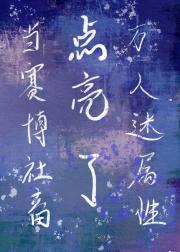 万人迷属性
点亮了
当赛博社畜